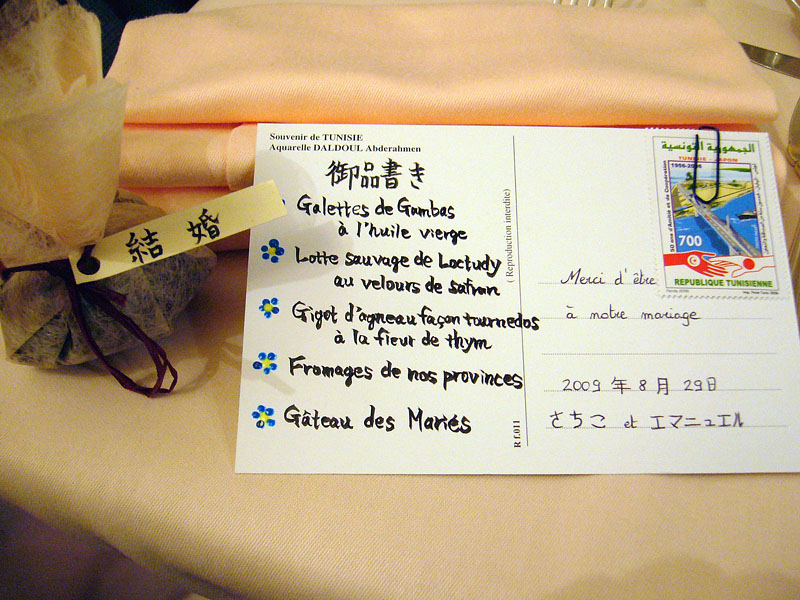 Souvenir de TUNISIE
Aquarelle DALDOUL Abderahmen
御品書き
Galettes de Gambas
à l'huile vierge
Lotte sauvage de Loctudy
au velours de safran
Gigot d'agneau façon tournedos
à la fleur de thym
Fromages de nos provinces
Gâteau des Mariés
結婚
( Reproduction interdite)
R f.011
الجمهورية التونسية
TUNISIE - JAPON
1956-2006
50 ans d'Amitié et de Coopération
700
REPUBLIQUE TUNISIENNE
Merci d'être
à notre mariage
2009 年 8 月 29日
さちこ et エマニュエル